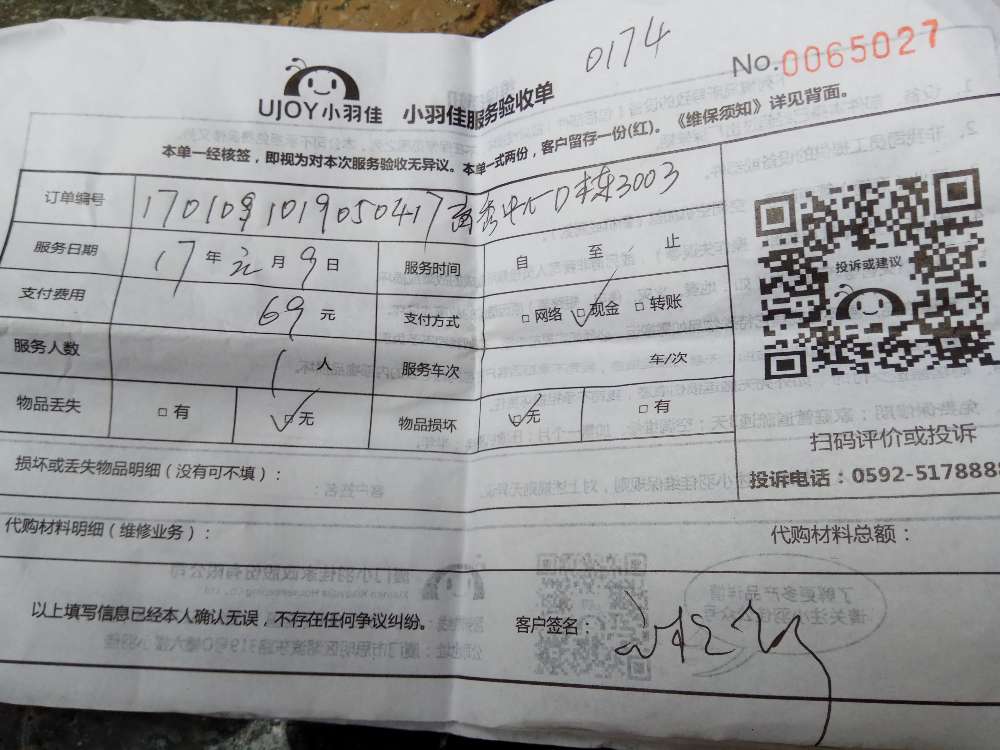 0174
No.0065027
UJOY小羽佳 小羽佳服务验收单
本单一经核签，即视为对本次服务验收无异议。本单一式两份，客户留存一份(红)。《维保须知》详见背面。
订单编号 D栋3003
服务日期 17年元月9日 服务时间 自 至 止
支付费用 69元 支付方式 □网络 □现金 □转账
服务人数 1人 服务车次 车/次
物品丢失 □有 □无 物品损坏 □无 □有
投诉或建议
扫码评价或投诉
投诉电话：0592-5178888
损坏或丢失物品明细（没有可不填）：
代购材料明细（维修业务）： 代购材料总额：
以上填写信息已经本人确认无误，不存在任何争议纠纷。 客户签名：